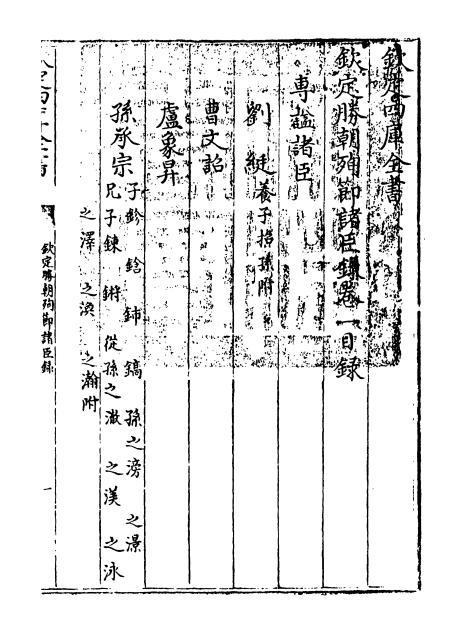 欽定四庫全書
欽定勝朝殉節諸臣錄卷一目録
專諡諸臣
劉綎養子招孫附
曹文詔
盧象昇
孫承宗子鉁 鋡 鈰 鎬 孫之滂 之澋
兄子鍊 鏘 從孫之澈 之渼 之泳
之澤 之渙 之瀚附
欽定勝朝殉節諸臣錄
一